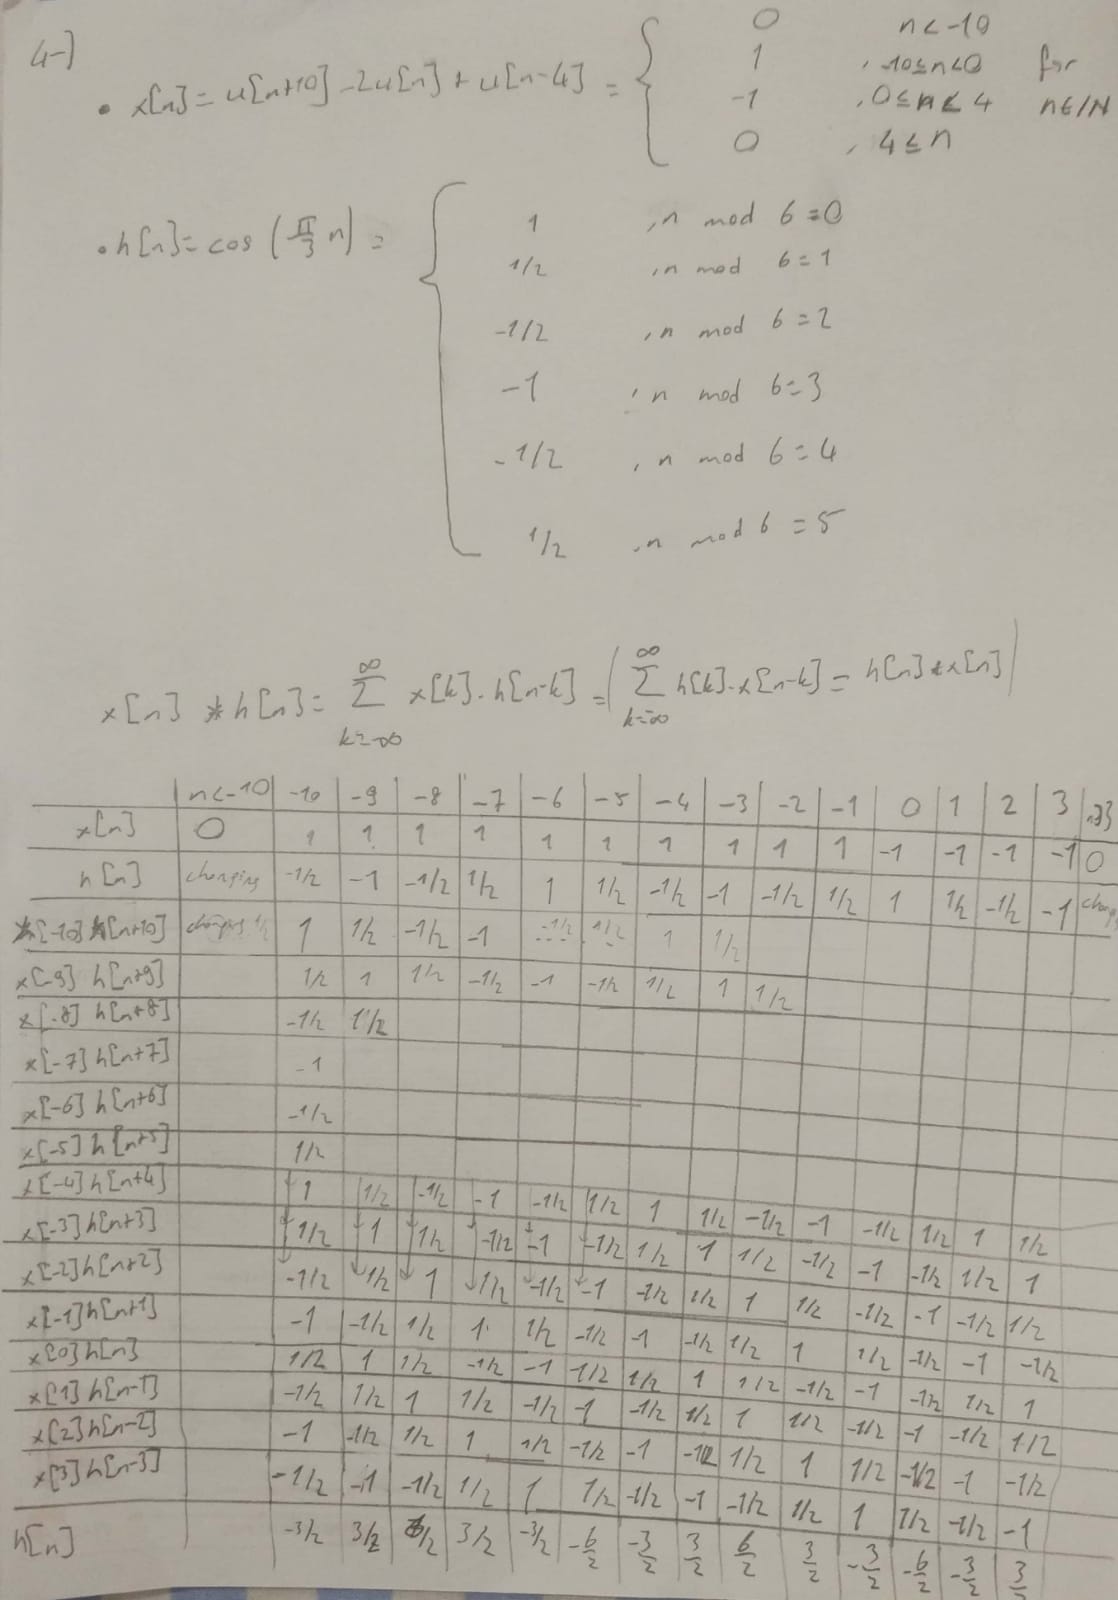 4-)
0 n<-10
• x[n] = u[n+10] -2u[n] + u[n-4] = { 1 , -10≤n<0 for
-1 , 0≤n<4 n∈/N
0 , 4≤n
1 , n mod 6=0
• h[n] = cos (π/3 n) = { 1/2 , n mod 6=1
-1/2 , n mod 6=2
-1 , n mod 6=3
-1/2 , n mod 6=4
1/2 , n mod 6=5
x[n] * h[n] = ∞ Σ k=-∞ x[k] . h[n-k] = ( ∞ Σ k=-∞ h[k] . x[n-k] = h[n] * x[n] )
n<-10 -10 -9 -8 -7 -6 -5 -4 -3 -2 -1 0 1 2 3 n>3
x[n] 0 1 1 1 1 1 1 1 1 1 1 -1 -1 -1 -1 0
h[n] changing -1/2 -1 -1/2 1/2 1 1/2 -1/2 -1 -1/2 1/2 1 1/2 -1/2 -1
x[-10] h[n+10] 1 1/2 -1/2 -1 -1/2 1/2 1 1/2
x[-9] h[n+9] 1/2 1 1/2 -1/2 -1 -1/2 1/2 1 1/2
x[-8] h[n+8] -1/2 1/2
x[-7] h[n+7] -1
x[-6] h[n+6] -1/2
x[-5] h[n+5] 1/2
x[-4] h[n+4] 1 1/2 -1/2 -1 -1/2 1/2 1 1/2 -1/2 -1 -1/2 1/2 1 1/2
x[-3] h[n+3] 1/2 1 1/2 -1/2 -1 -1/2 1/2 1 1/2 -1/2 -1 -1/2 1/2 1
x[-2] h[n+2] -1/2 1/2 1 1/2 -1/2 -1 -1/2 1/2 1 1/2 -1/2 -1 -1/2 1/2
x[-1] h[n+1] -1 -1/2 1/2 1 1/2 -1/2 -1 -1/2 1/2 1 1/2 -1/2 -1 -1/2
x[0] h[n] 1/2 1 1/2 -1/2 -1 -1/2 1/2 1 1/2 -1/2 -1 -1/2 1/2 1
x[1] h[n-1] -1/2 1/2 1 1/2 -1/2 -1 -1/2 1/2 1 1/2 -1/2 -1 -1/2 1/2
x[2] h[n-2] -1 -1/2 1/2 1 1/2 -1/2 -1 -1/2 1/2 1 1/2 -1/2 -1 -1/2
x[3] h[n-3] -1/2 -1 -1/2 1/2 1 1/2 -1/2 -1 -1/2 1/2 1 1/2 -1/2 -1
h[n] -3/2 3/2 6/2 3/2 -3/2 -6/2 -3/2 3/2 6/2 3/2 -3/2 -6/2 -3/2 3/2